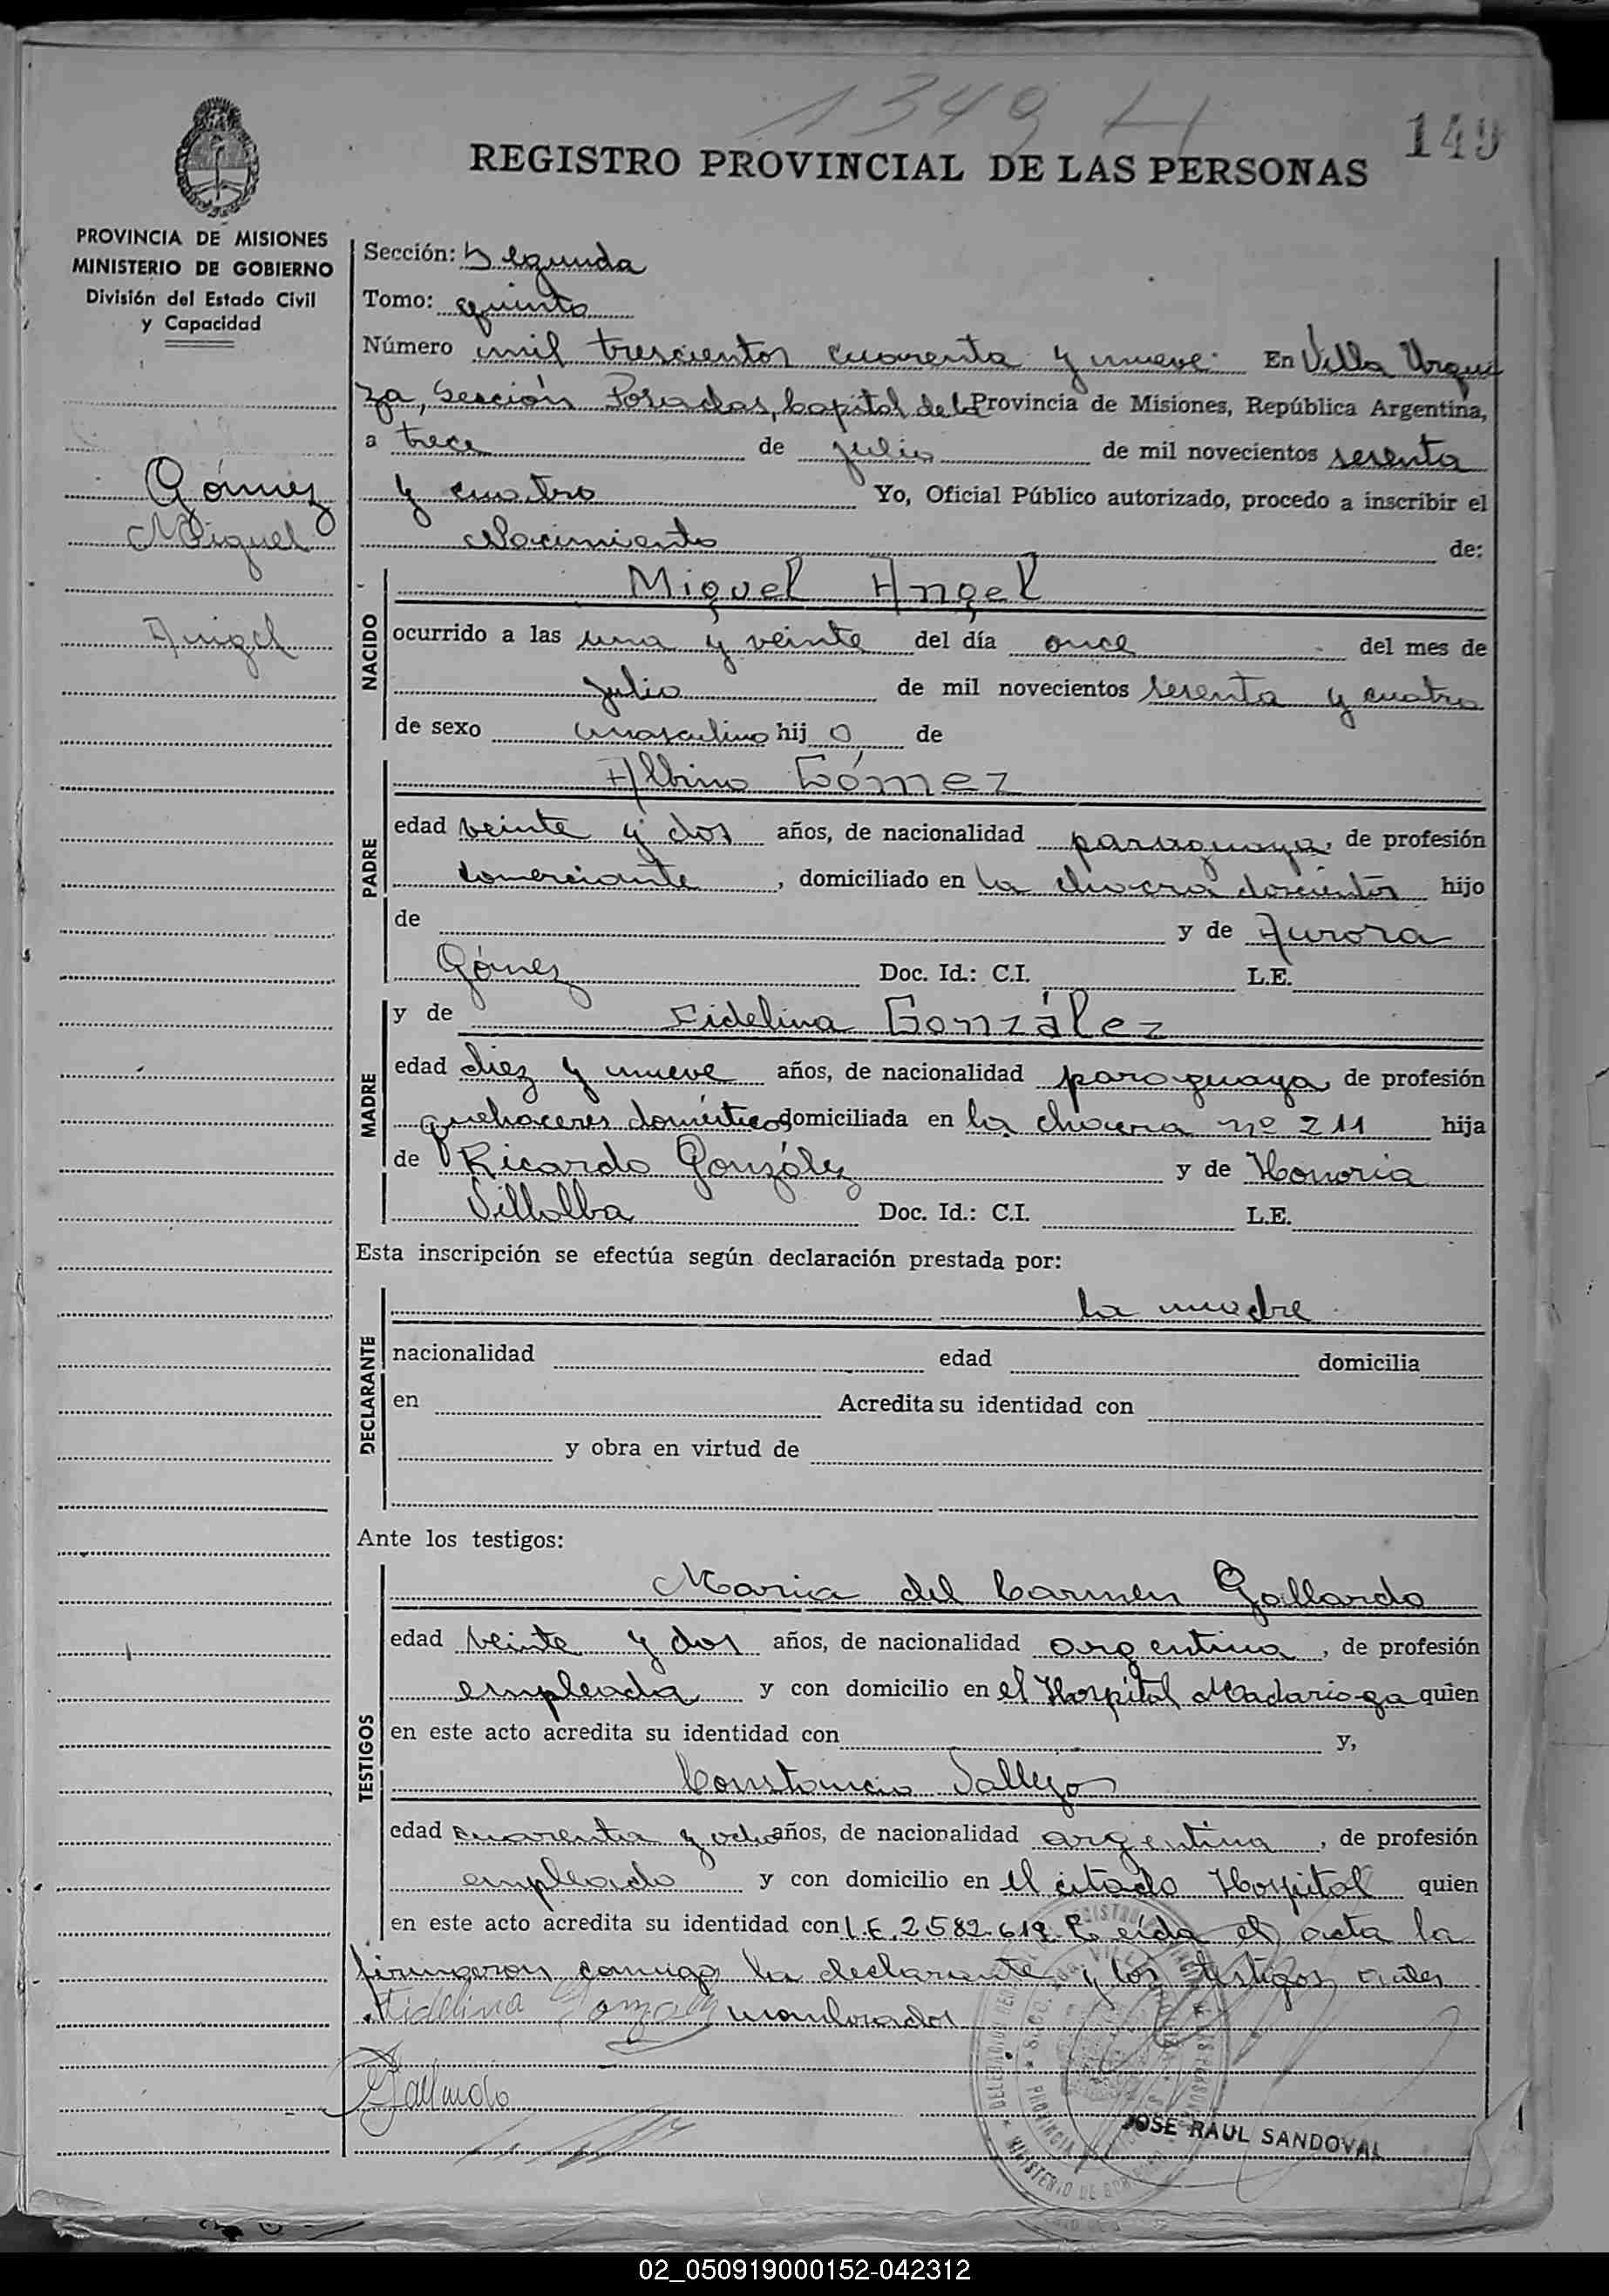 1349 H
149
REGISTRO PROVINCIAL DE LAS PERSONAS
PROVINCIA DE MISIONES
MINISTERIO DE GOBIERNO
División del Estado Civil
y Capacidad
Gómez
Miguel
Angel
Sección: Segunda
Tomo: quinto
Número mil trescientos cuarenta y nueve En Villa Urqui
za, Sección Posadas, Capital de la Provincia de Misiones, República Argentina,
a trece de julio de mil novecientos sesenta
y cuatro Yo, Oficial Público autorizado, procedo a inscribir el
Nacimiento de:
NACIDO
Miguel Angel
ocurrido a las una y veinte del día once del mes de
julio de mil novecientos sesenta y cuatro
de sexo masculino hij o de
PADRE
Albino Gómez
edad veinte y dos años, de nacionalidad paraguaya, de profesión
comerciante, domiciliado en la chacra doscientos hijo
de y de Aurora
Gómez Doc. Id.: C.I. L.E.
MADRE
y de Fidelina González
edad diez y nueve años, de nacionalidad paraguaya de profesión
quehaceres domésticos domiciliada en la chacra nº 211 hija
de Ricardo González y de Honoria
Villalba Doc. Id.: C.I. L.E.
Esta inscripción se efectúa según declaración prestada por:
DECLARANTE
la madre
nacionalidad edad domicilia
en Acredita su identidad con
y obra en virtud de
Ante los testigos:
TESTIGOS
Maria del Carmen Gallardo
edad veinte y dos años, de nacionalidad argentina, de profesión
empleada y con domicilio en el Hospital Madariaga quien
en este acto acredita su identidad con y,
Constancio Vallejos
edad cuarenta y ocho años, de nacionalidad argentina, de profesión
empleado y con domicilio en el citado Hospital quien
en este acto acredita su identidad con L.E. 2.582.619. el acta la
firmaron conmigo la declarante y los testigos antes
Fidelina Gonzalez nombrados
Gallardo
JOSE RAUL SANDOVAL
02_050919000152-042312